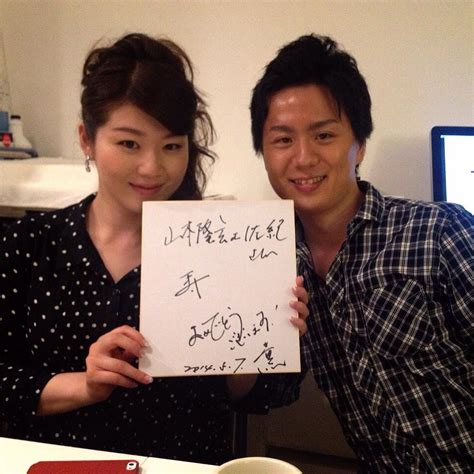 山本隆 紀
さん
寿
おめでとう
ございます!
2014.5.7. 薫